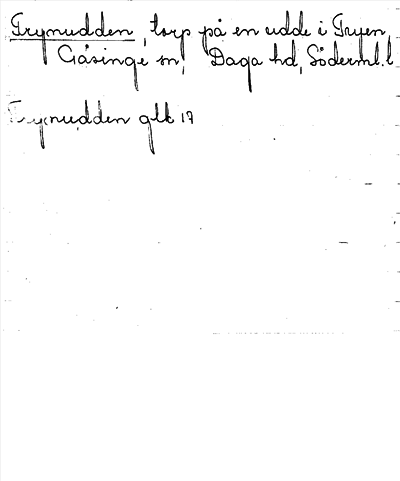 Frynudden, torp på en udde i Fryen,
Gåsinge sn, Daga hd, Söderml. l
Frynudden glk 17